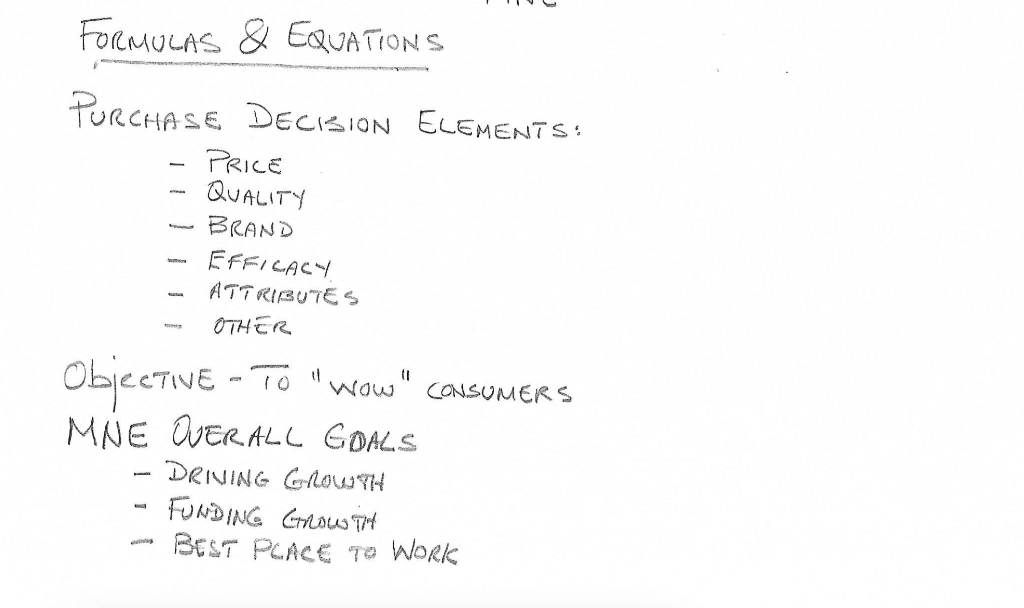 FORMULAS & EQUATIONS
PURCHASE DECISION ELEMENTS:
- PRICE
- QUALITY
- BRAND
- EFFICACY
- ATTRIBUTES
- OTHER
ObjECTIVE - TO "WOW" CONSUMERS
MNE OVERALL GOALS
- DRIVING GROWTH
- FUNDING GROWTH
- BEST PLACE TO WORK